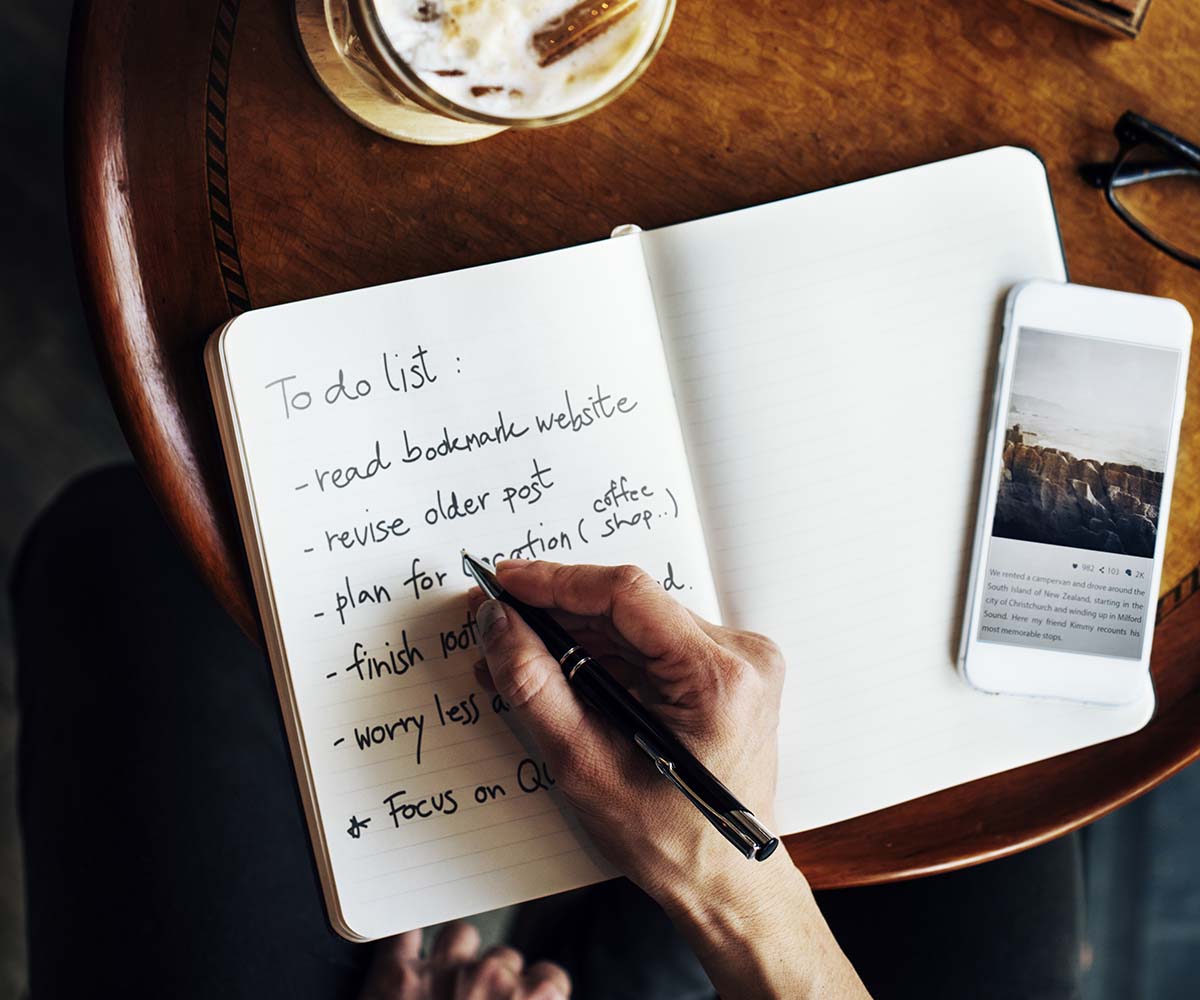 To do list :
- read bookmark website
- revise older post
- plan for location ( coffee shop.. )
- finish
- worry less
* Focus on
982 103 2K
We rented a campervan and drove around the
South Island of New Zealand, starting in the
city of Christchurch and winding up in Milford
Sound. Here my friend Kimmy recounts his
most memorable stops.